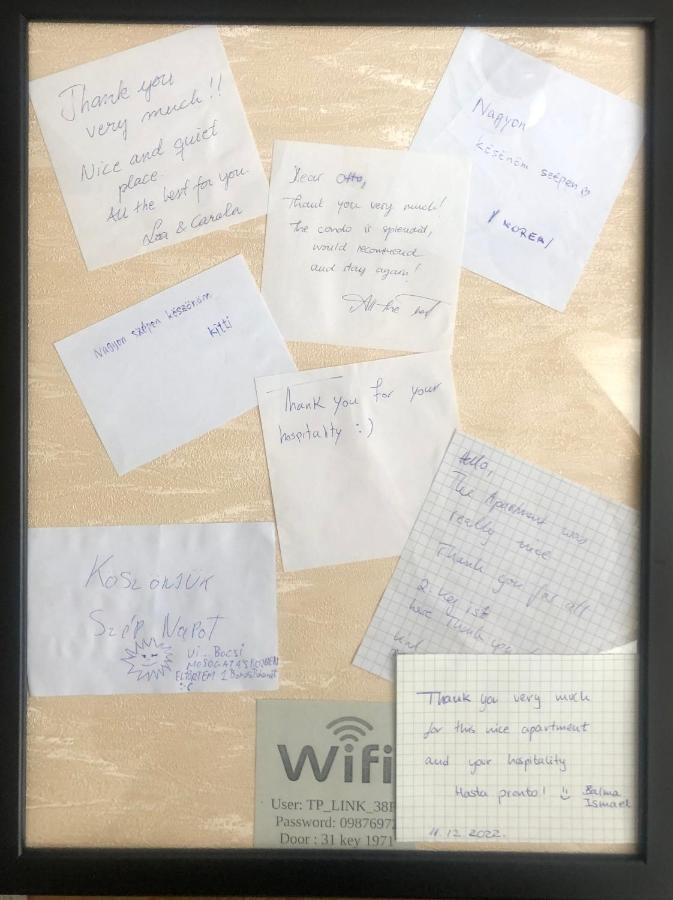 Thank you
very much!!
Nice and quiet
place.
All the best for you.
& Carola
Nagyon
késéném szépen
KOREA
Dear Otto,
Thank you very much!
The condo is splendid,
would recommend
and stay again!
All the
Nagyon szépen készönöm
Kitti
Thank you for your
hospitality :)
Hello,
The Apartment was
really nice
Thank you for all
2. Key ist
here Thank you
Koszönjük
Szép Napot
Ui.. Bocsi
MOSOGATÁS KÖZBEN
ELTÖRTEM 1
:(
Thank you very much
for this nice apartment
and your hospitality
Hasta pronto! Balma
Ismael
11.12.2022.
Wifi
User: TP_LINK_38
Password: 0987697
Door : 31 key 1971